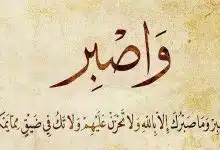 وَاصْبِر
وَمَا صَبْرُكَ إِلَّا بِاللَّهِ وَلَا تَحْزَنْ عَلَيْهِمْ وَلَا تَكُ فِي ضَيْقٍ مِمَّا يَمْكُ